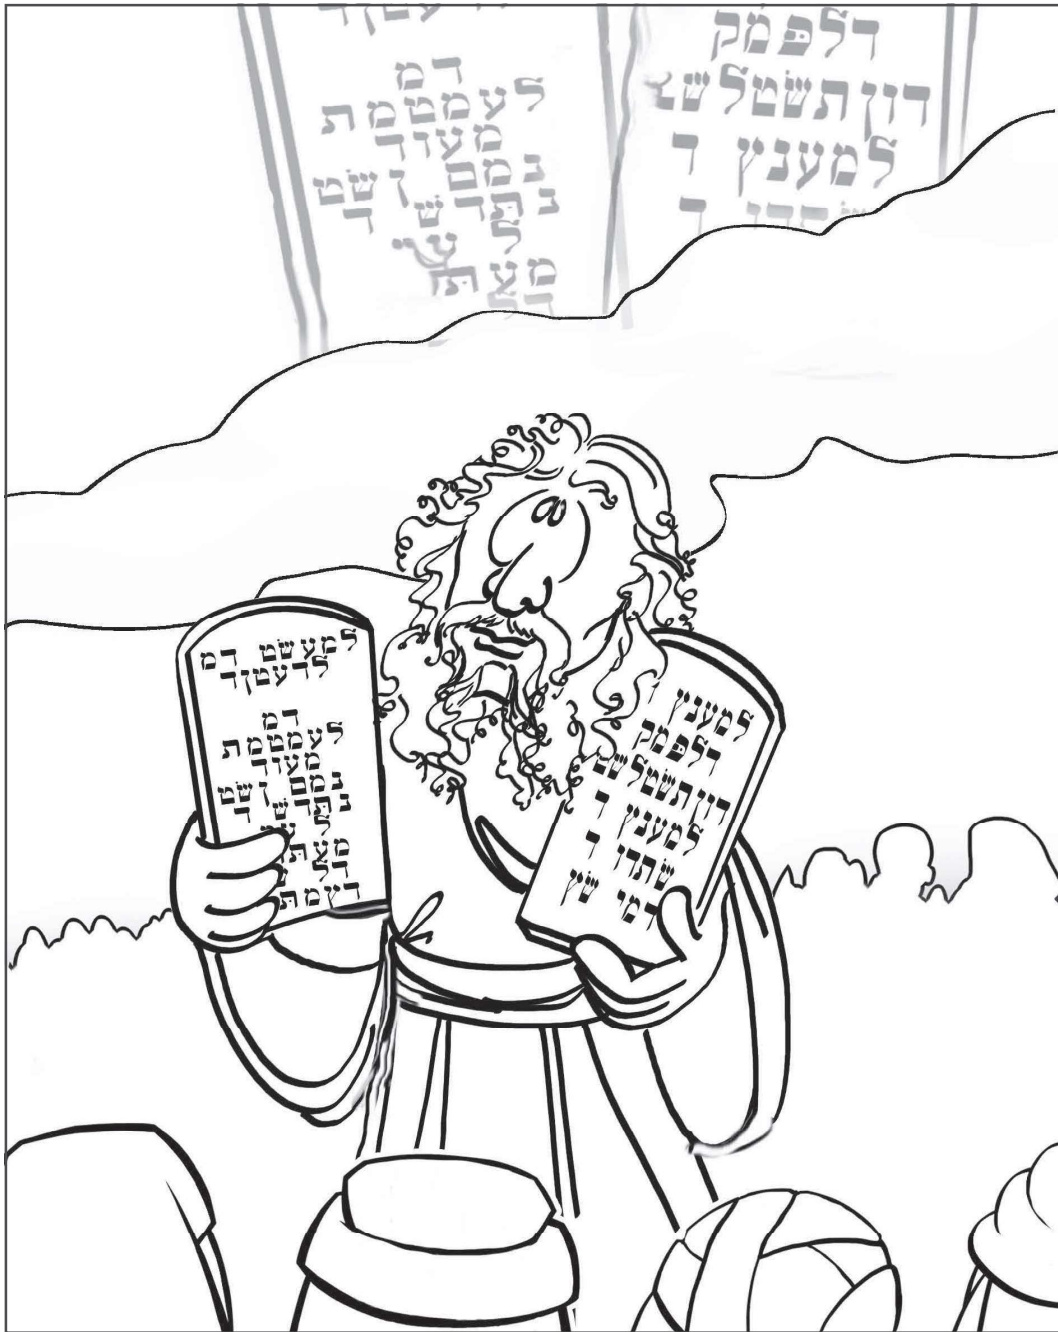 דמ
לעמטמת
מעוד
נמם ן שט
נ תדש ד
ל
מעת
דלפמק
דוןתשטלש
למענץ ד
למעשט דמ
לדעטןד
דמ
לעמטמת
מעוד
נמם ן שט
נ תדש ד
ל
מעת
דל
דצמת
למענץ
דלפמק
דוןתשטלש
למענץ ד
שתדו ד
שץ